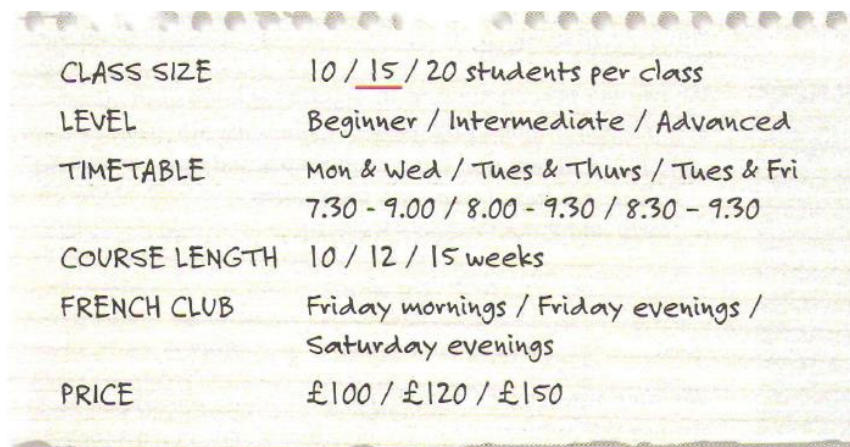 CLASS SIZE 10 / 15 / 20 students per class
LEVEL Beginner / Intermediate / Advanced
TIMETABLE Mon & Wed / Tues & Thurs / Tues & Fri
7.30 - 9.00 / 8.00 - 9.30 / 8.30 - 9.30
COURSE LENGTH 10 / 12 / 15 weeks
FRENCH CLUB Friday mornings / Friday evenings /
Saturday evenings
PRICE £100 / £120 / £150